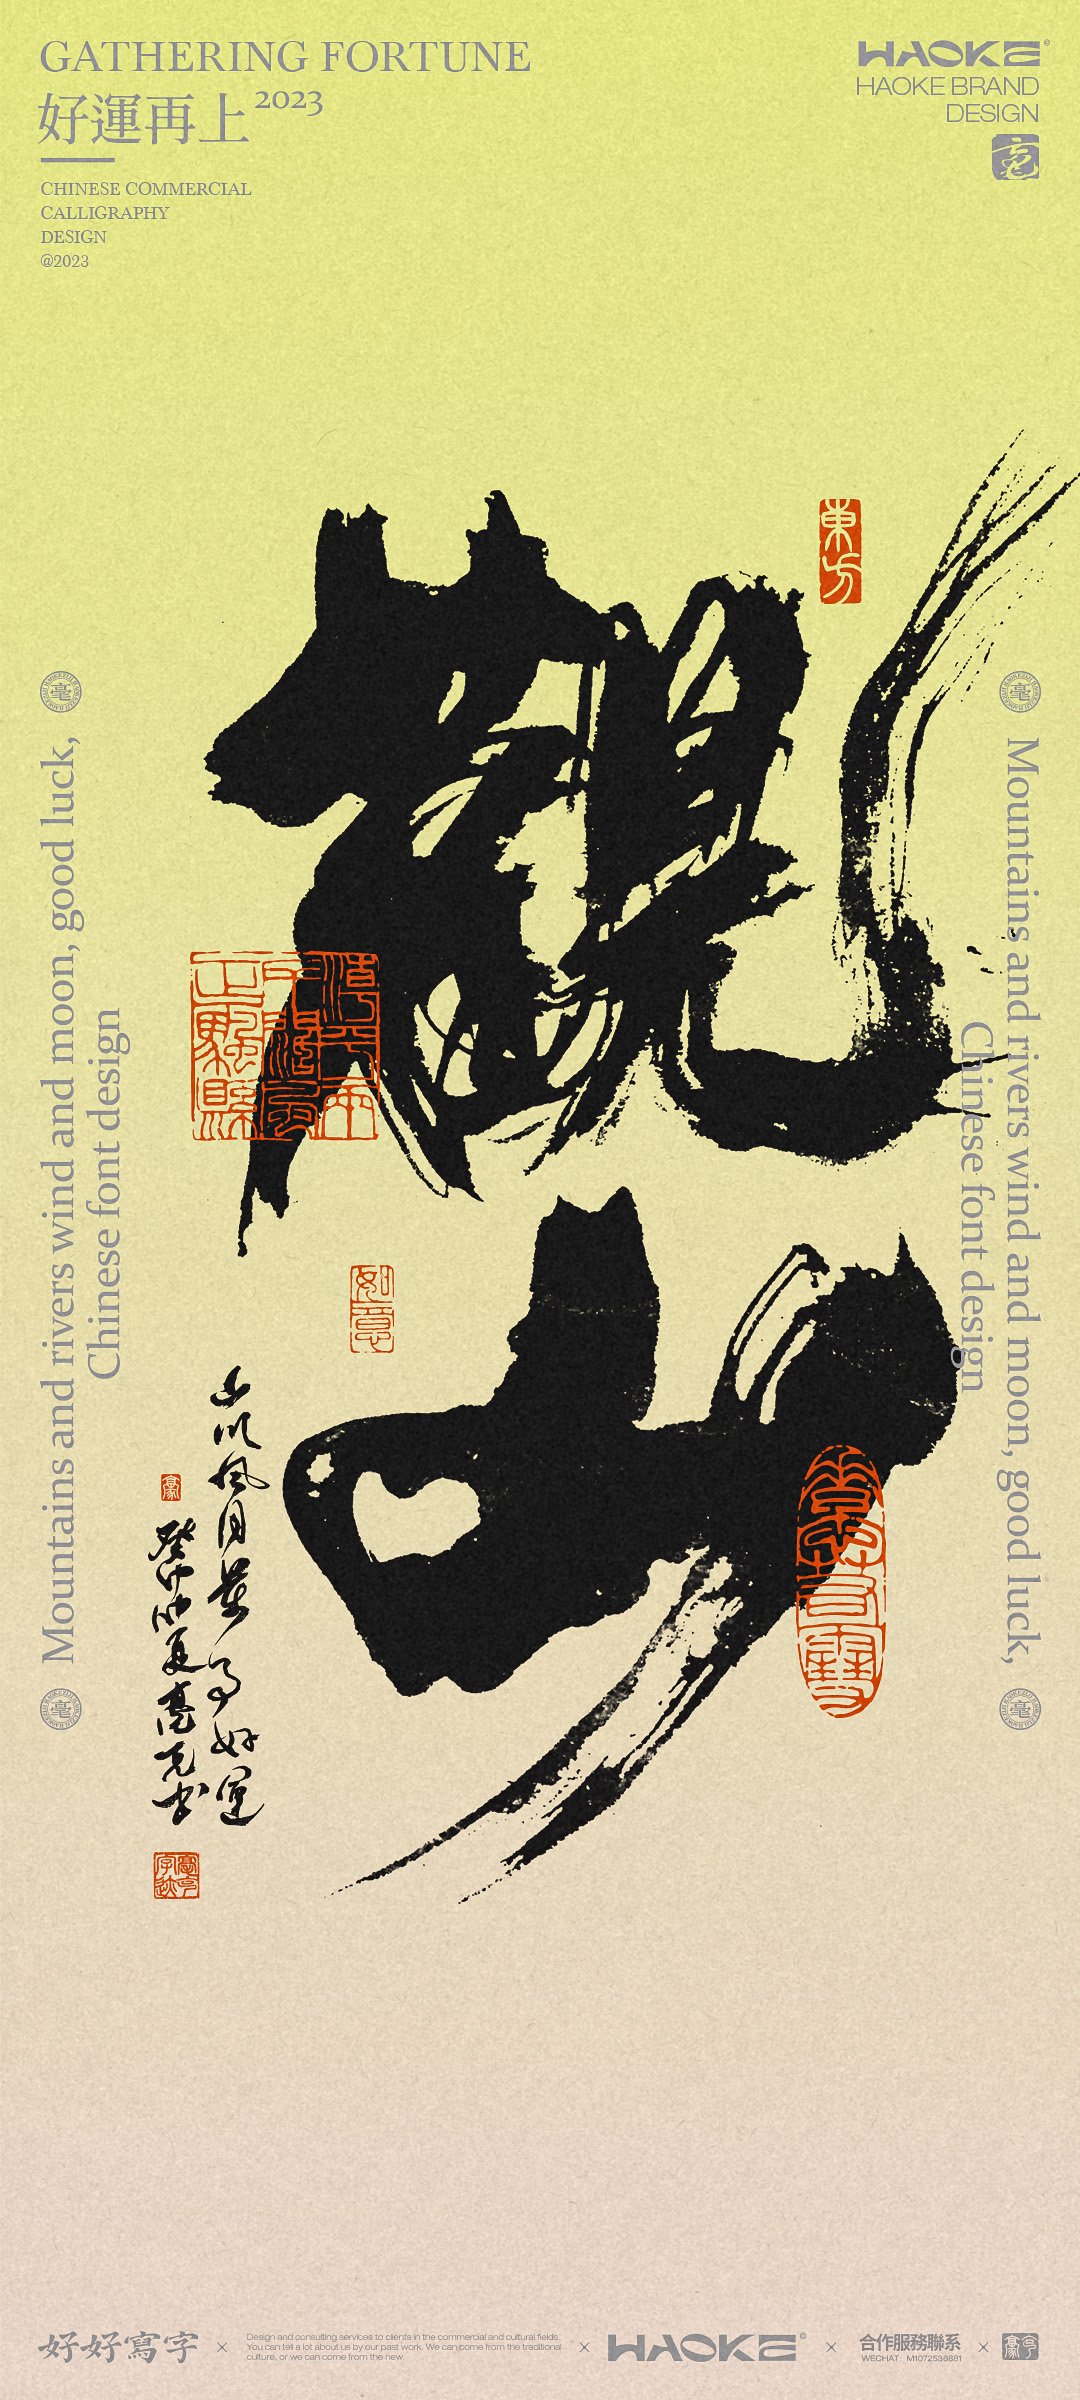 GATHERING FORTUNE
好運再上 2023
CHINESE COMMERCIAL
CALLIGRAPHY
DESIGN
@2023
HAOKE
HAOKE BRAND
DESIGN
東方
觀
山
如意
Mountains and rivers wind and moon, good luck,
Chinese font design
Mountains and rivers wind and moon, good luck,
Chinese font design
毫
毫
毫
毫
好好寫字
Design and consulting services to clients in the commercial and cultural fields.
You can tell a lot about us by our past work. We can come from the traditional
culture, or we can come from the new.
HAOKE
合作服務聯系
WECHAT: M1072536881